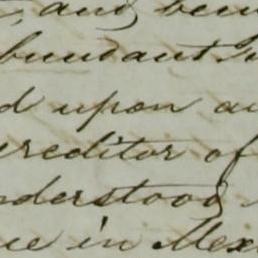 , and
bundant
d upon a
creditor of
nderstood
ce in Mex